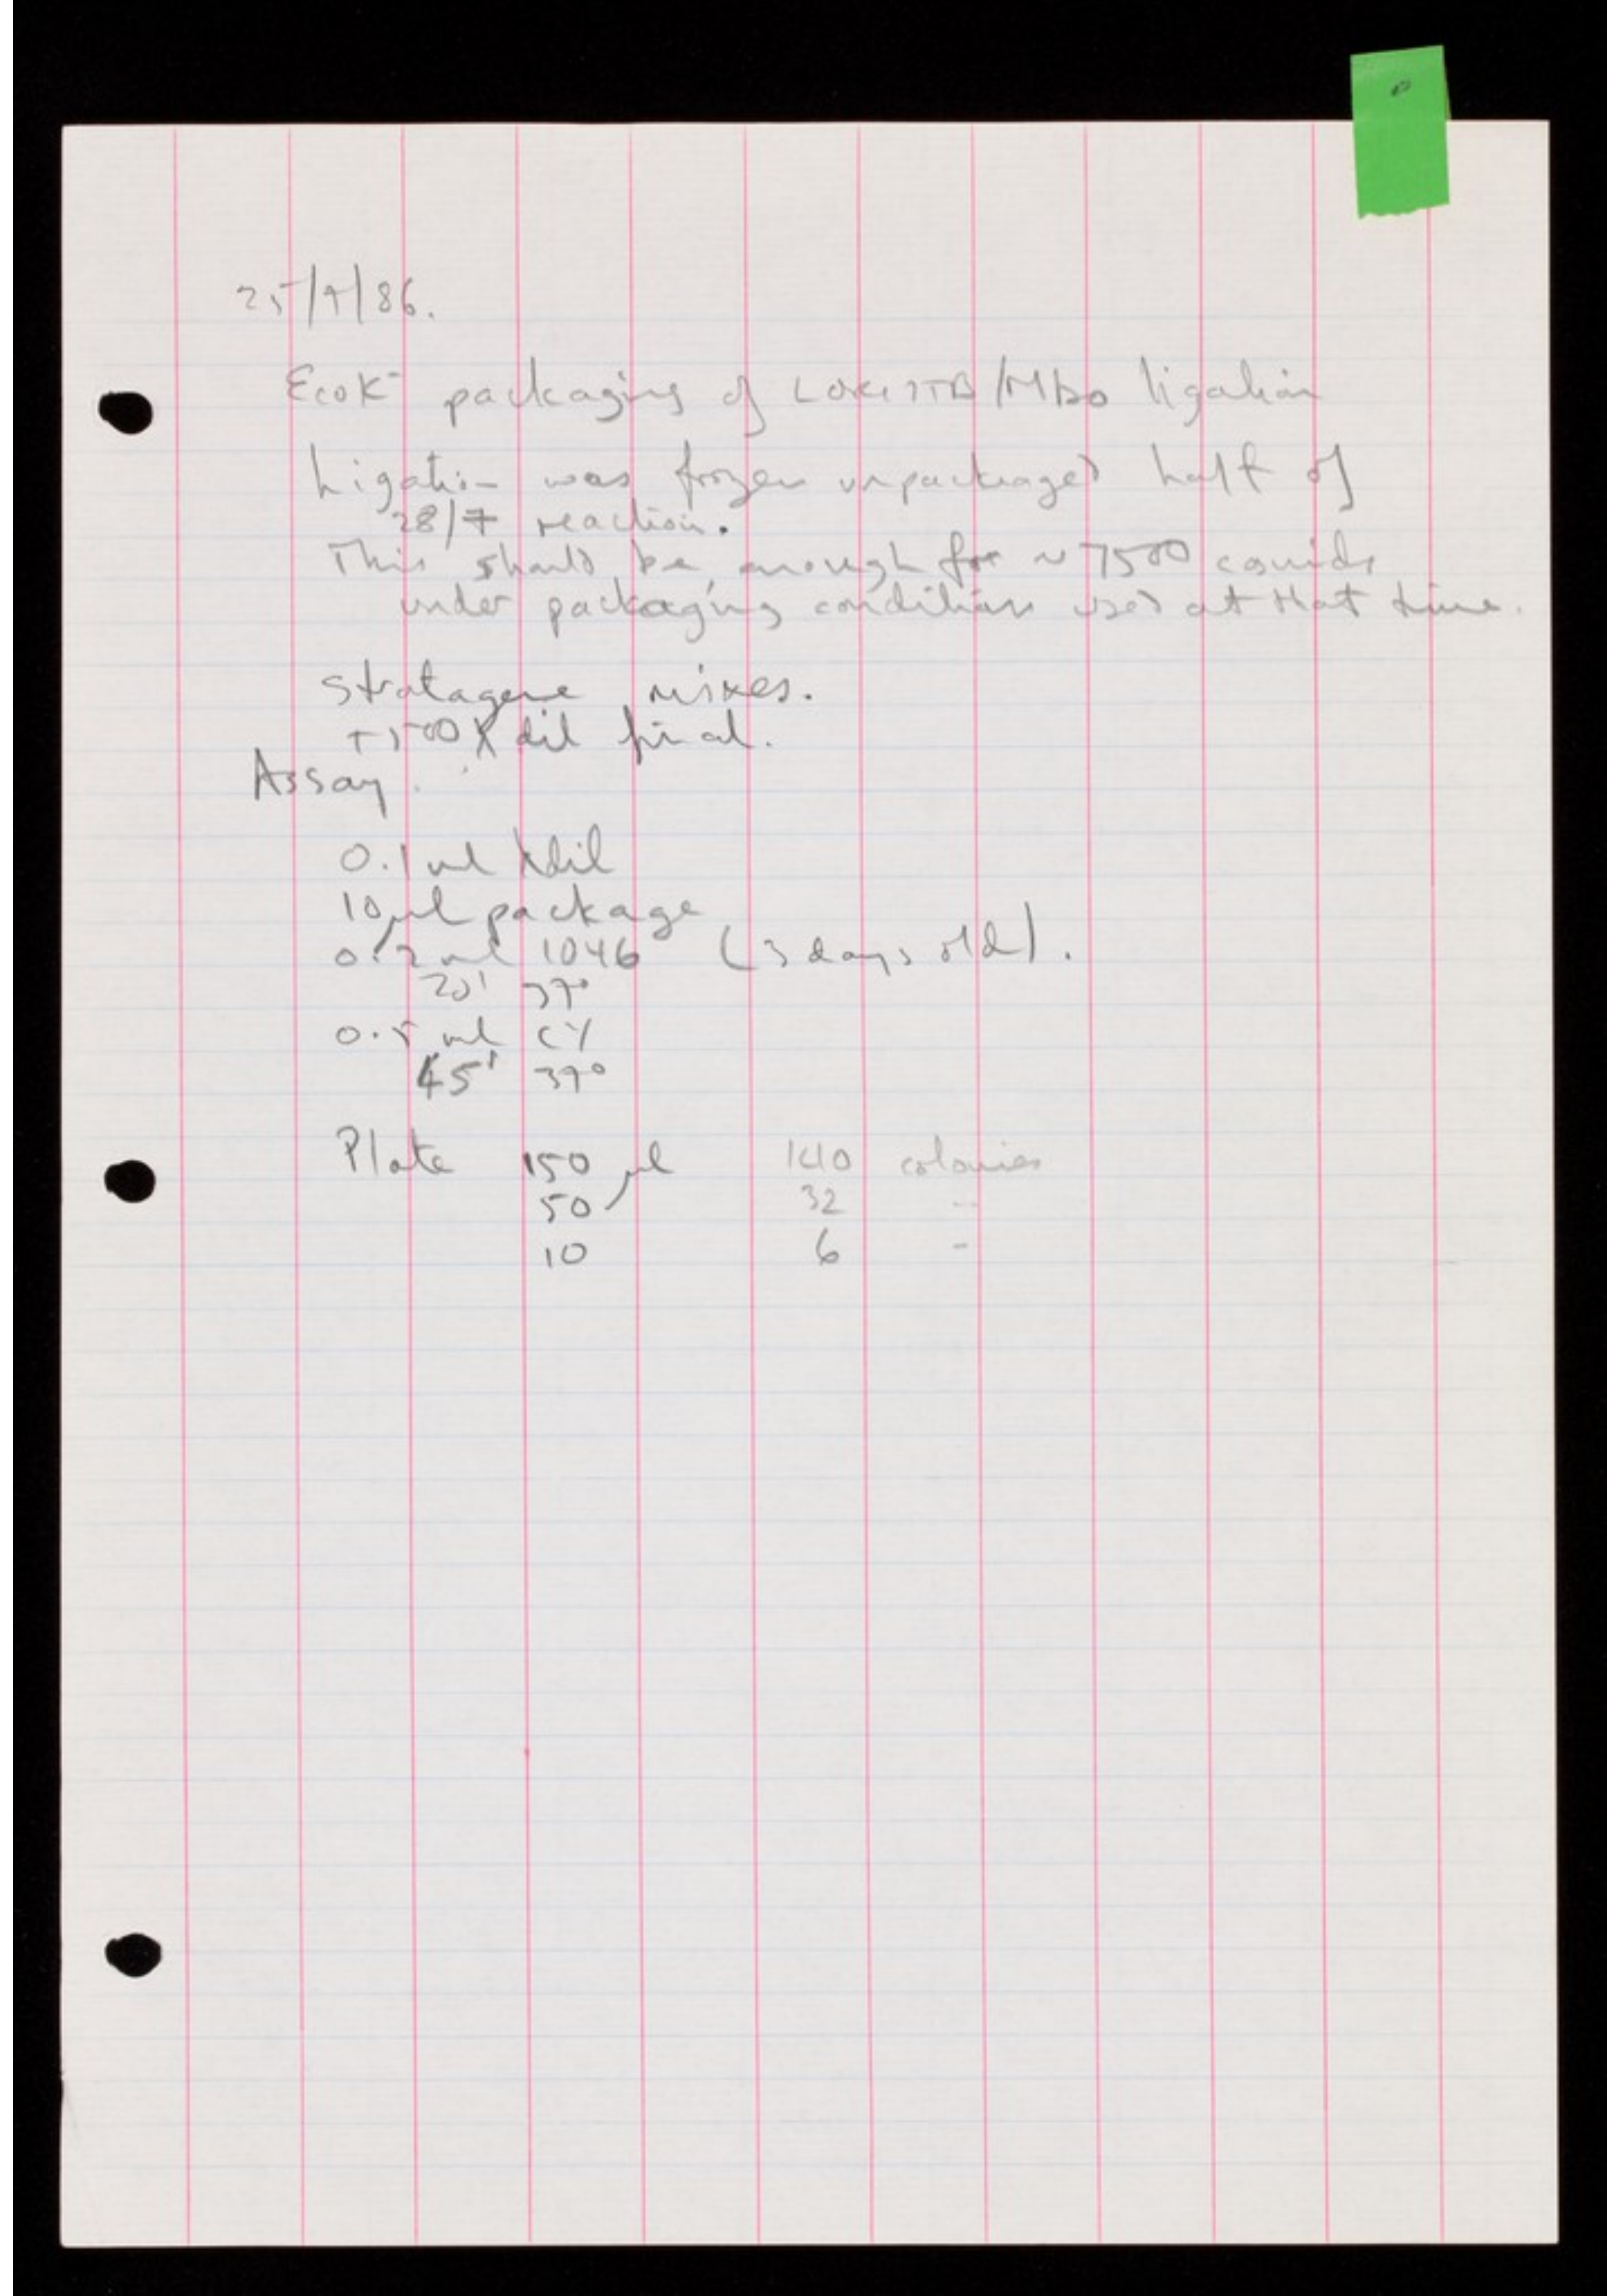 25/9/86.
EcoK⁻ packaging of Lorist B/Mbo ligation
Ligation was frozen unpackaged half of
28/7 reaction.
This should be enough for ~7500 cosmids
under packaging conditions used at that time.
Stratagene mixes.
+500 λdil final.
Assay.
0.1 ml λdil
10 μl package
0.2 ml 1046 (3 days old).
20' 37°
0.5 ml CY
45' 37°
Plate 150 μl 140 colonies
50 32 --
10 6 -